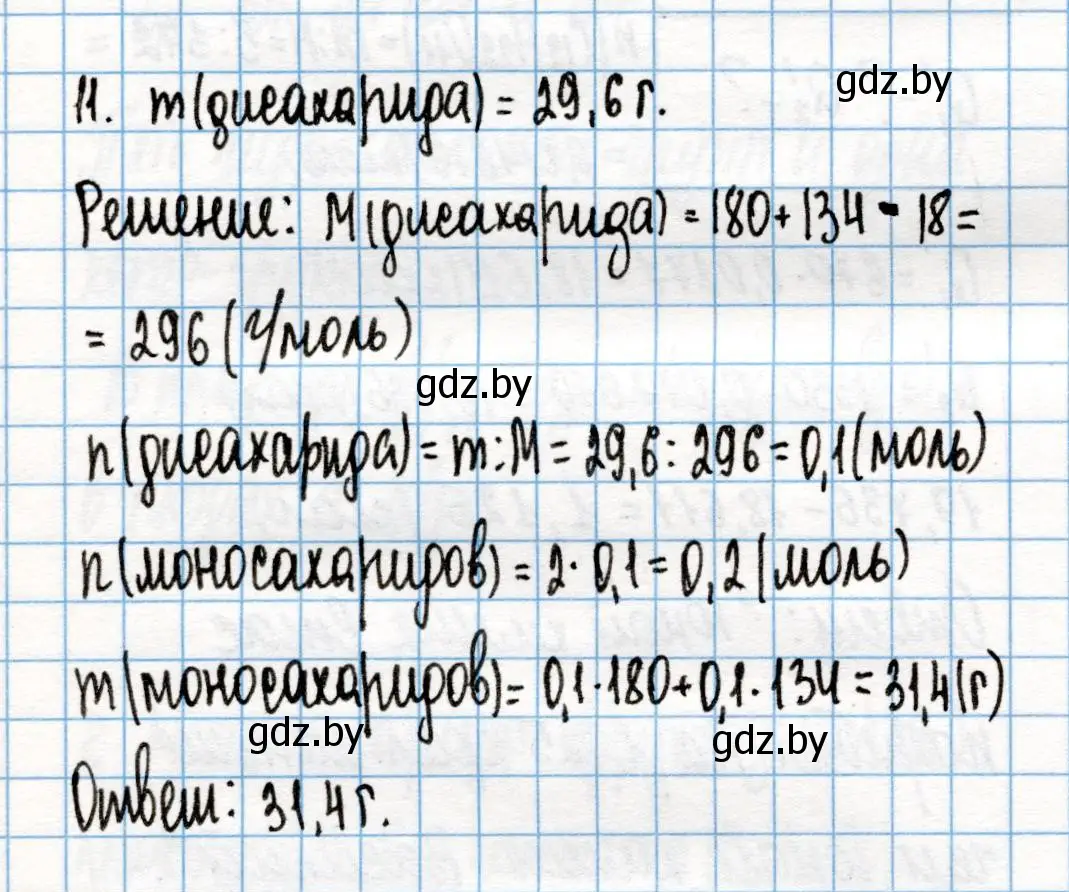 gdz.by
11. m(дисахарида) = 29,6 г.
Решение: M(дисахарида) = 180 + 134 - 18 =
= 296 (г/моль)
gdz.by
n(дисахарида) = m : M = 29,6 : 296 = 0,1 (моль)
n(моносахаридов) = 2 · 0,1 = 0,2 (моль)
m(моносахаридов) = 0,1 · 180 + 0,1 · 134 = 31,4 (г)
gdz.by gdz.by
Ответ: 31,4 г.